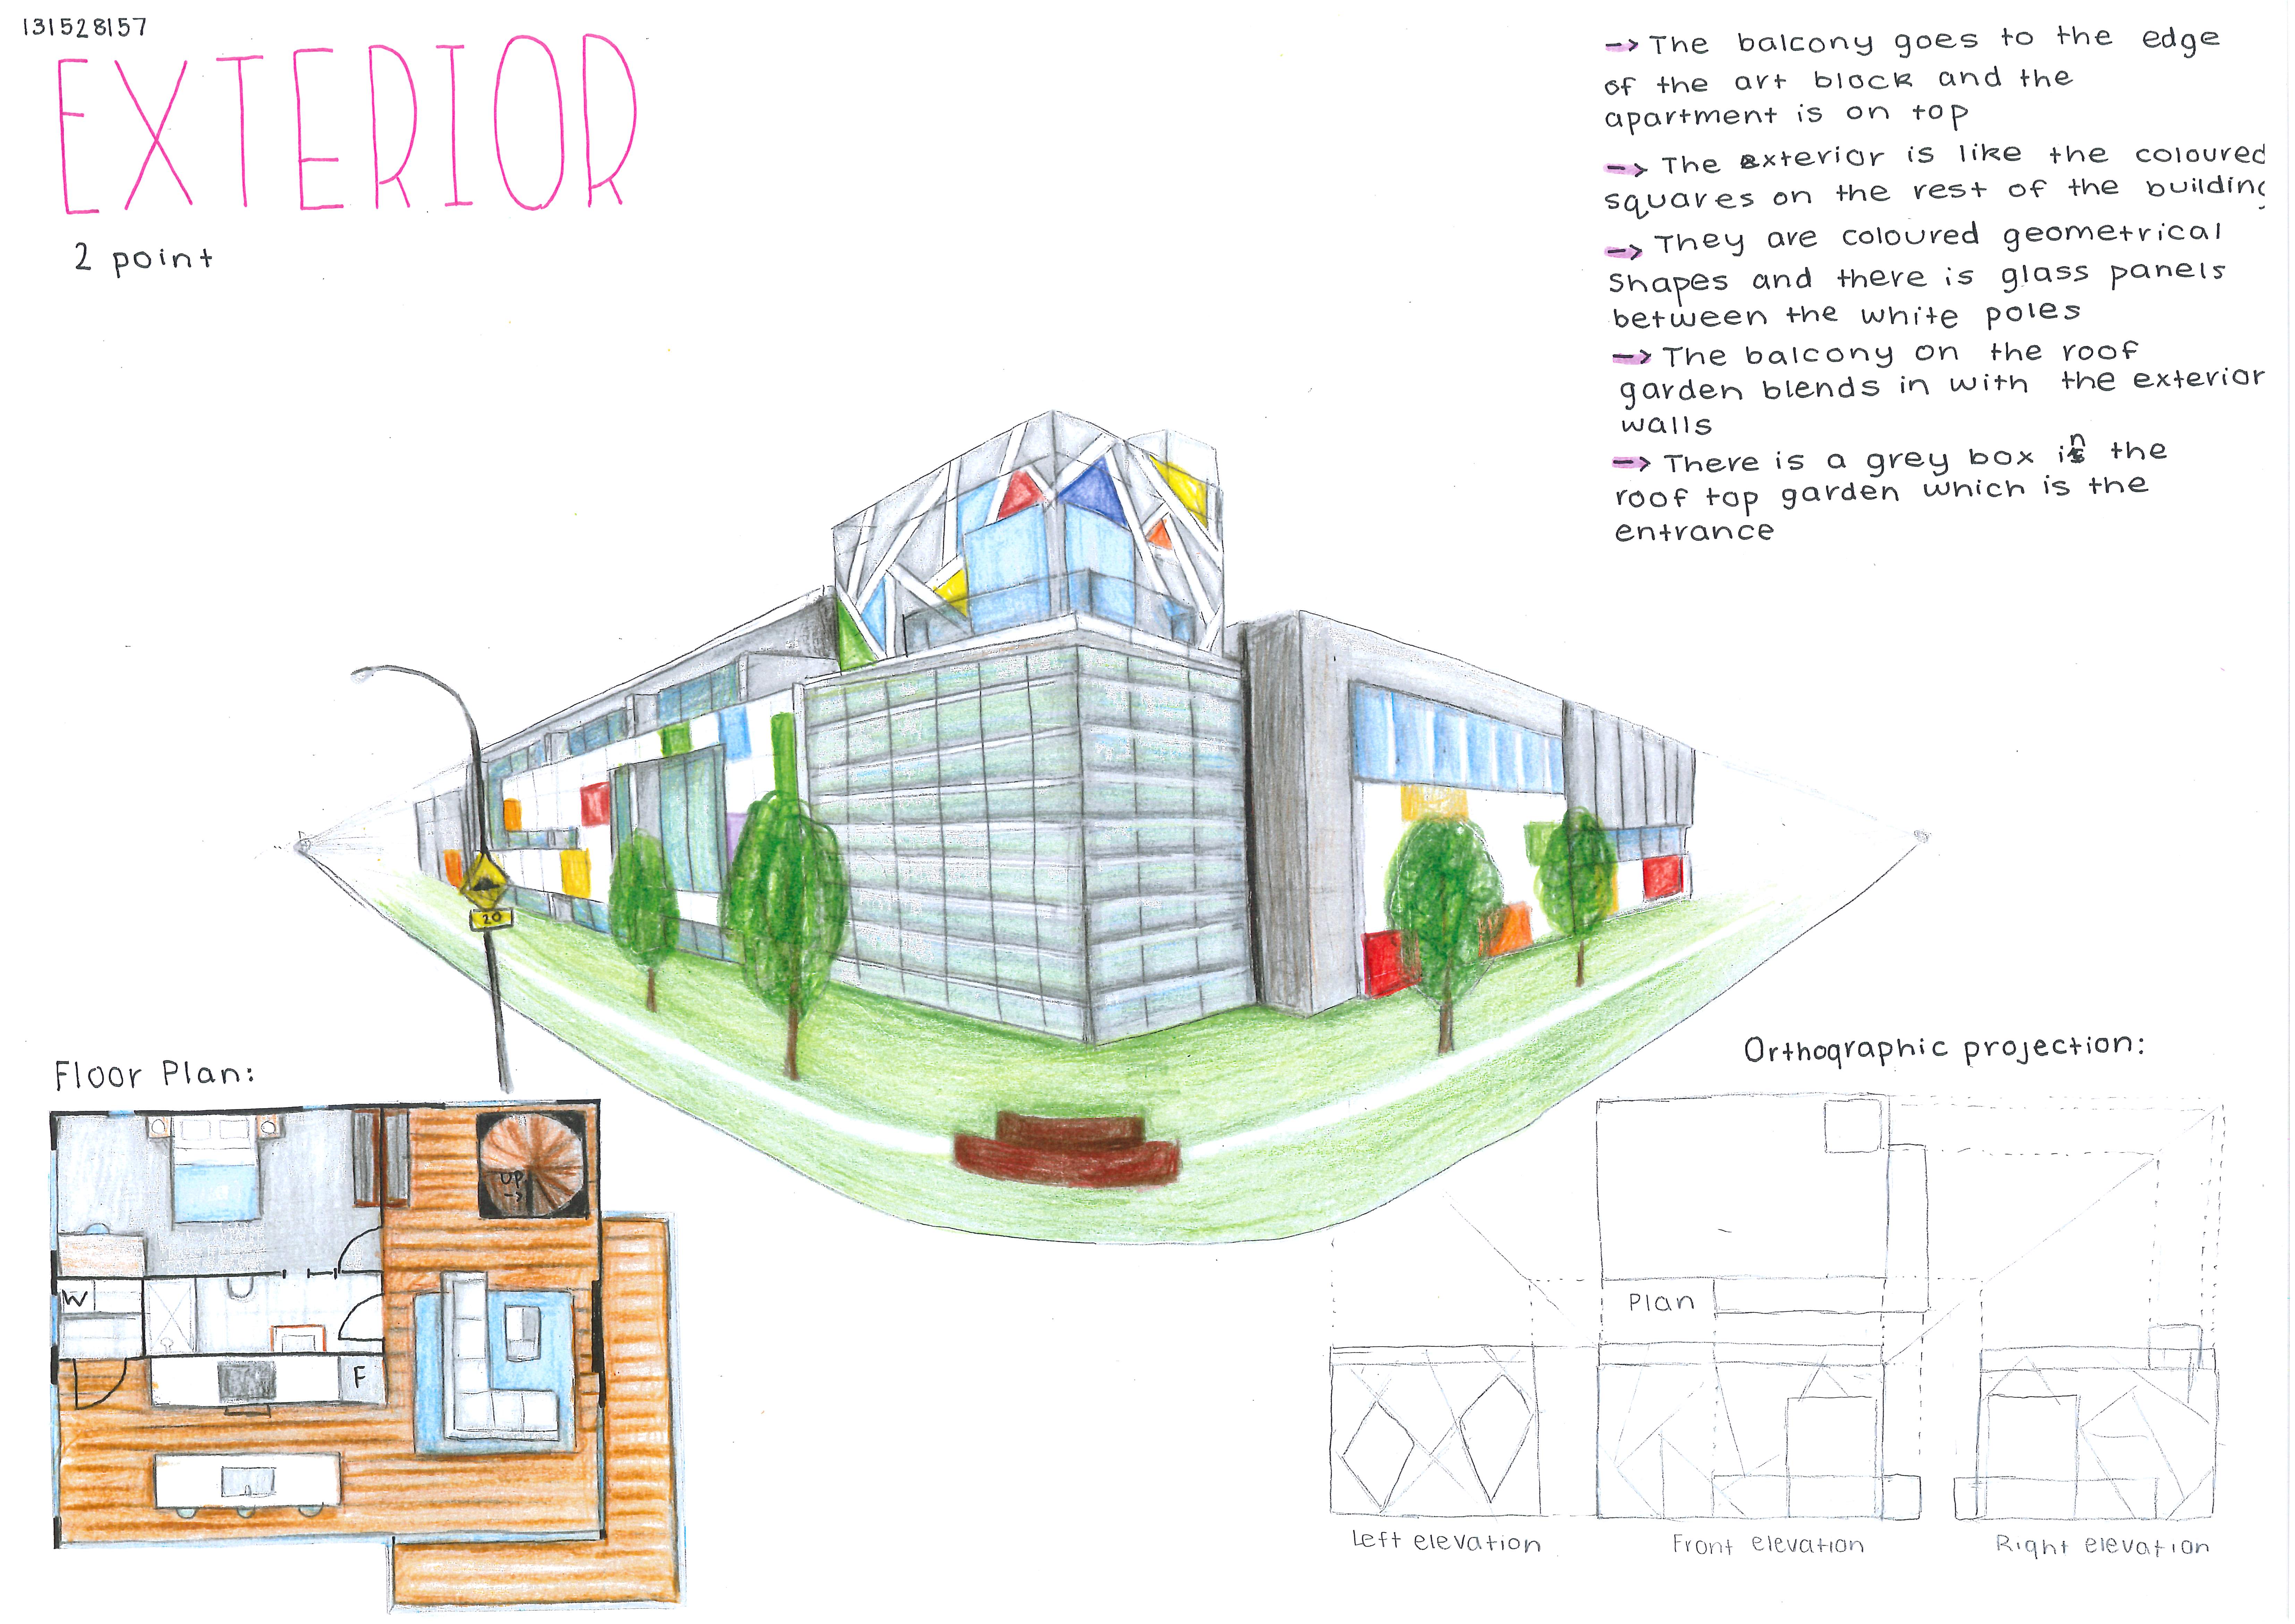 131528157
EXTERIOR
2 point
-> The balcony goes to the edge
of the art block and the
apartment is on top
-> The exterior is like the coloured
squares on the rest of the building
-> They are coloured geometrical
shapes and there is glass panels
between the white poles
-> The balcony on the roof
garden blends in with the exterior
walls
-> There is a grey box in the
roof top garden which is the
entrance
20
Floor Plan:
UP
->
W
F
Orthographic projection:
Plan
Left elevation
Front elevation
Right elevation